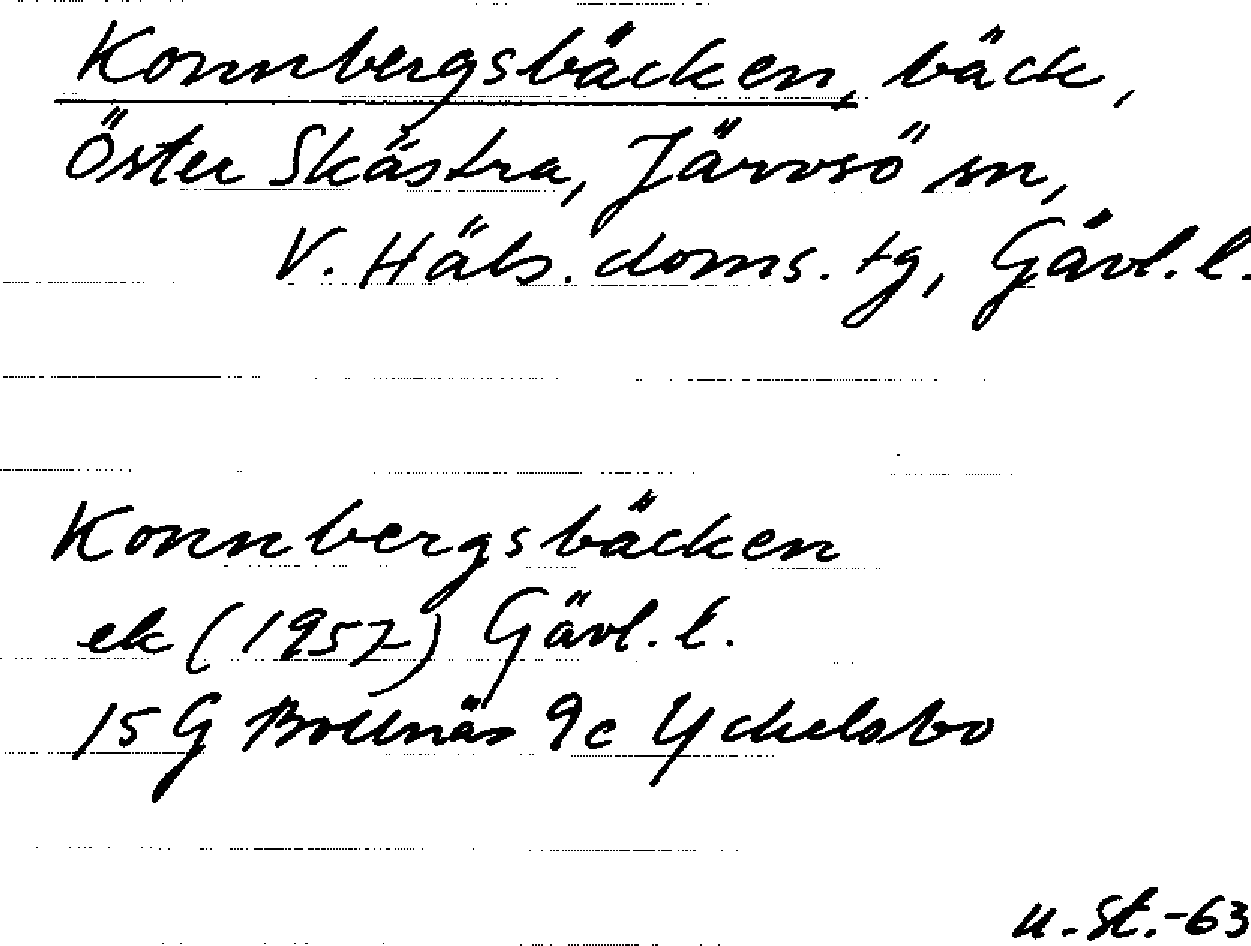 Konnbergsbäcken, bäck,
Öster Skästra, Järvsö sn,
V. Häls. doms. tg, Gävl. l.
Konnbergsbäcken
ek (1957) Gävl. l.
15 G Bollnäs 9c Yckelsbo
u. St.-63